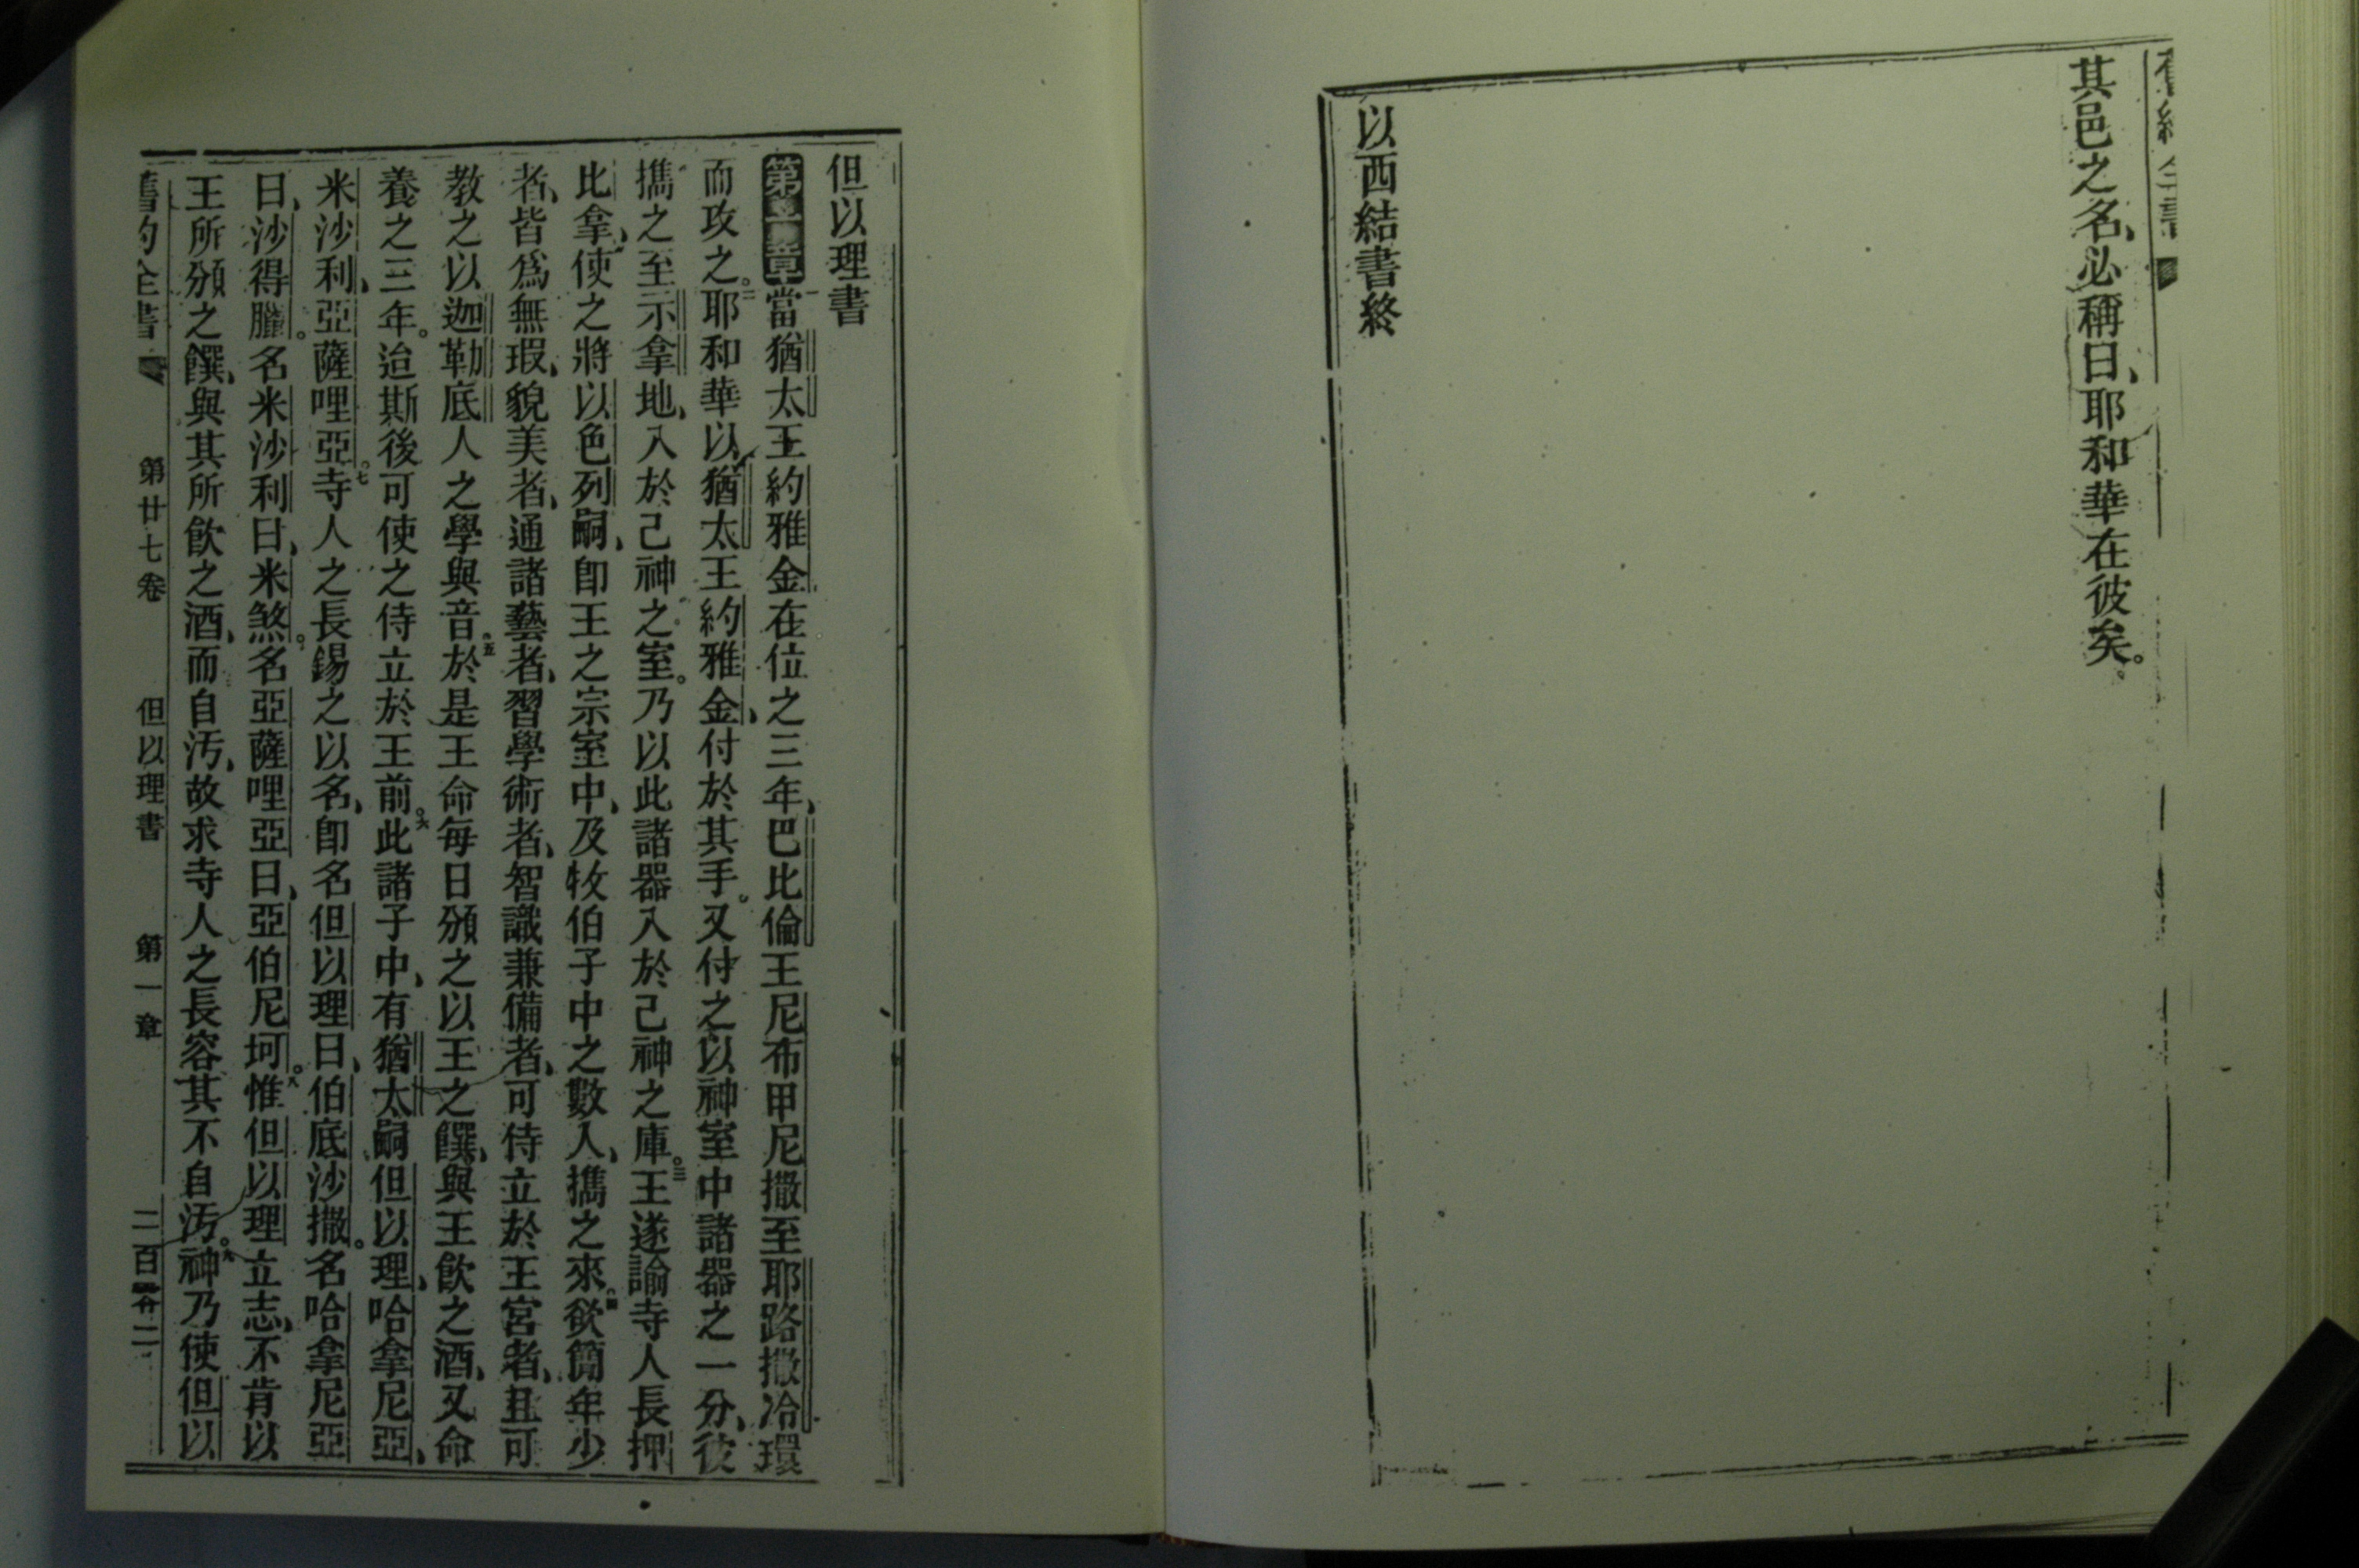 其邑之名、必稱曰、耶和華在彼矣。
以西結書終
但以理書
第一章當猶太王約雅金在位之三年、巴比倫王尼布甲尼撒至耶路撒冷環
而攻之。二耶和華以猶太王約雅金、付於其手。又付之以神室中諸器之一分、彼
攜之至示拿地、入於己神之室。乃以此諸器入於己神之庫。三王遂諭寺人長押
比拿、使之將以色列嗣、卽王之宗室中、及牧伯子中之數人、攜之來。四欲簡年少
者、皆爲無瑕、貌美者、通諸藝者、習學術者、智識兼備者、可侍立於王宮者、且可
教之以迦勒底人之學與音。五於是王命每日頒之以王之饌、與王飲之酒、又命
養之三年。迨斯後可使之侍立於王前。六此諸子中、有猶太嗣但以理、哈拿尼亞、
米沙利、亞薩哩亞。七寺人之長錫之以名、卽名但以理曰、伯底沙撒。名哈拿尼亞
曰、沙得臘。名米沙利曰、米煞。名亞薩哩亞曰、亞伯尼坷。八惟但以理立志、不肯以
王所頒之饌、與其所飲之酒、而自汚、故求寺人之長容其不自汚。九神乃使但以
舊約全書 第廿七卷 但以理書 第一章 二百 二